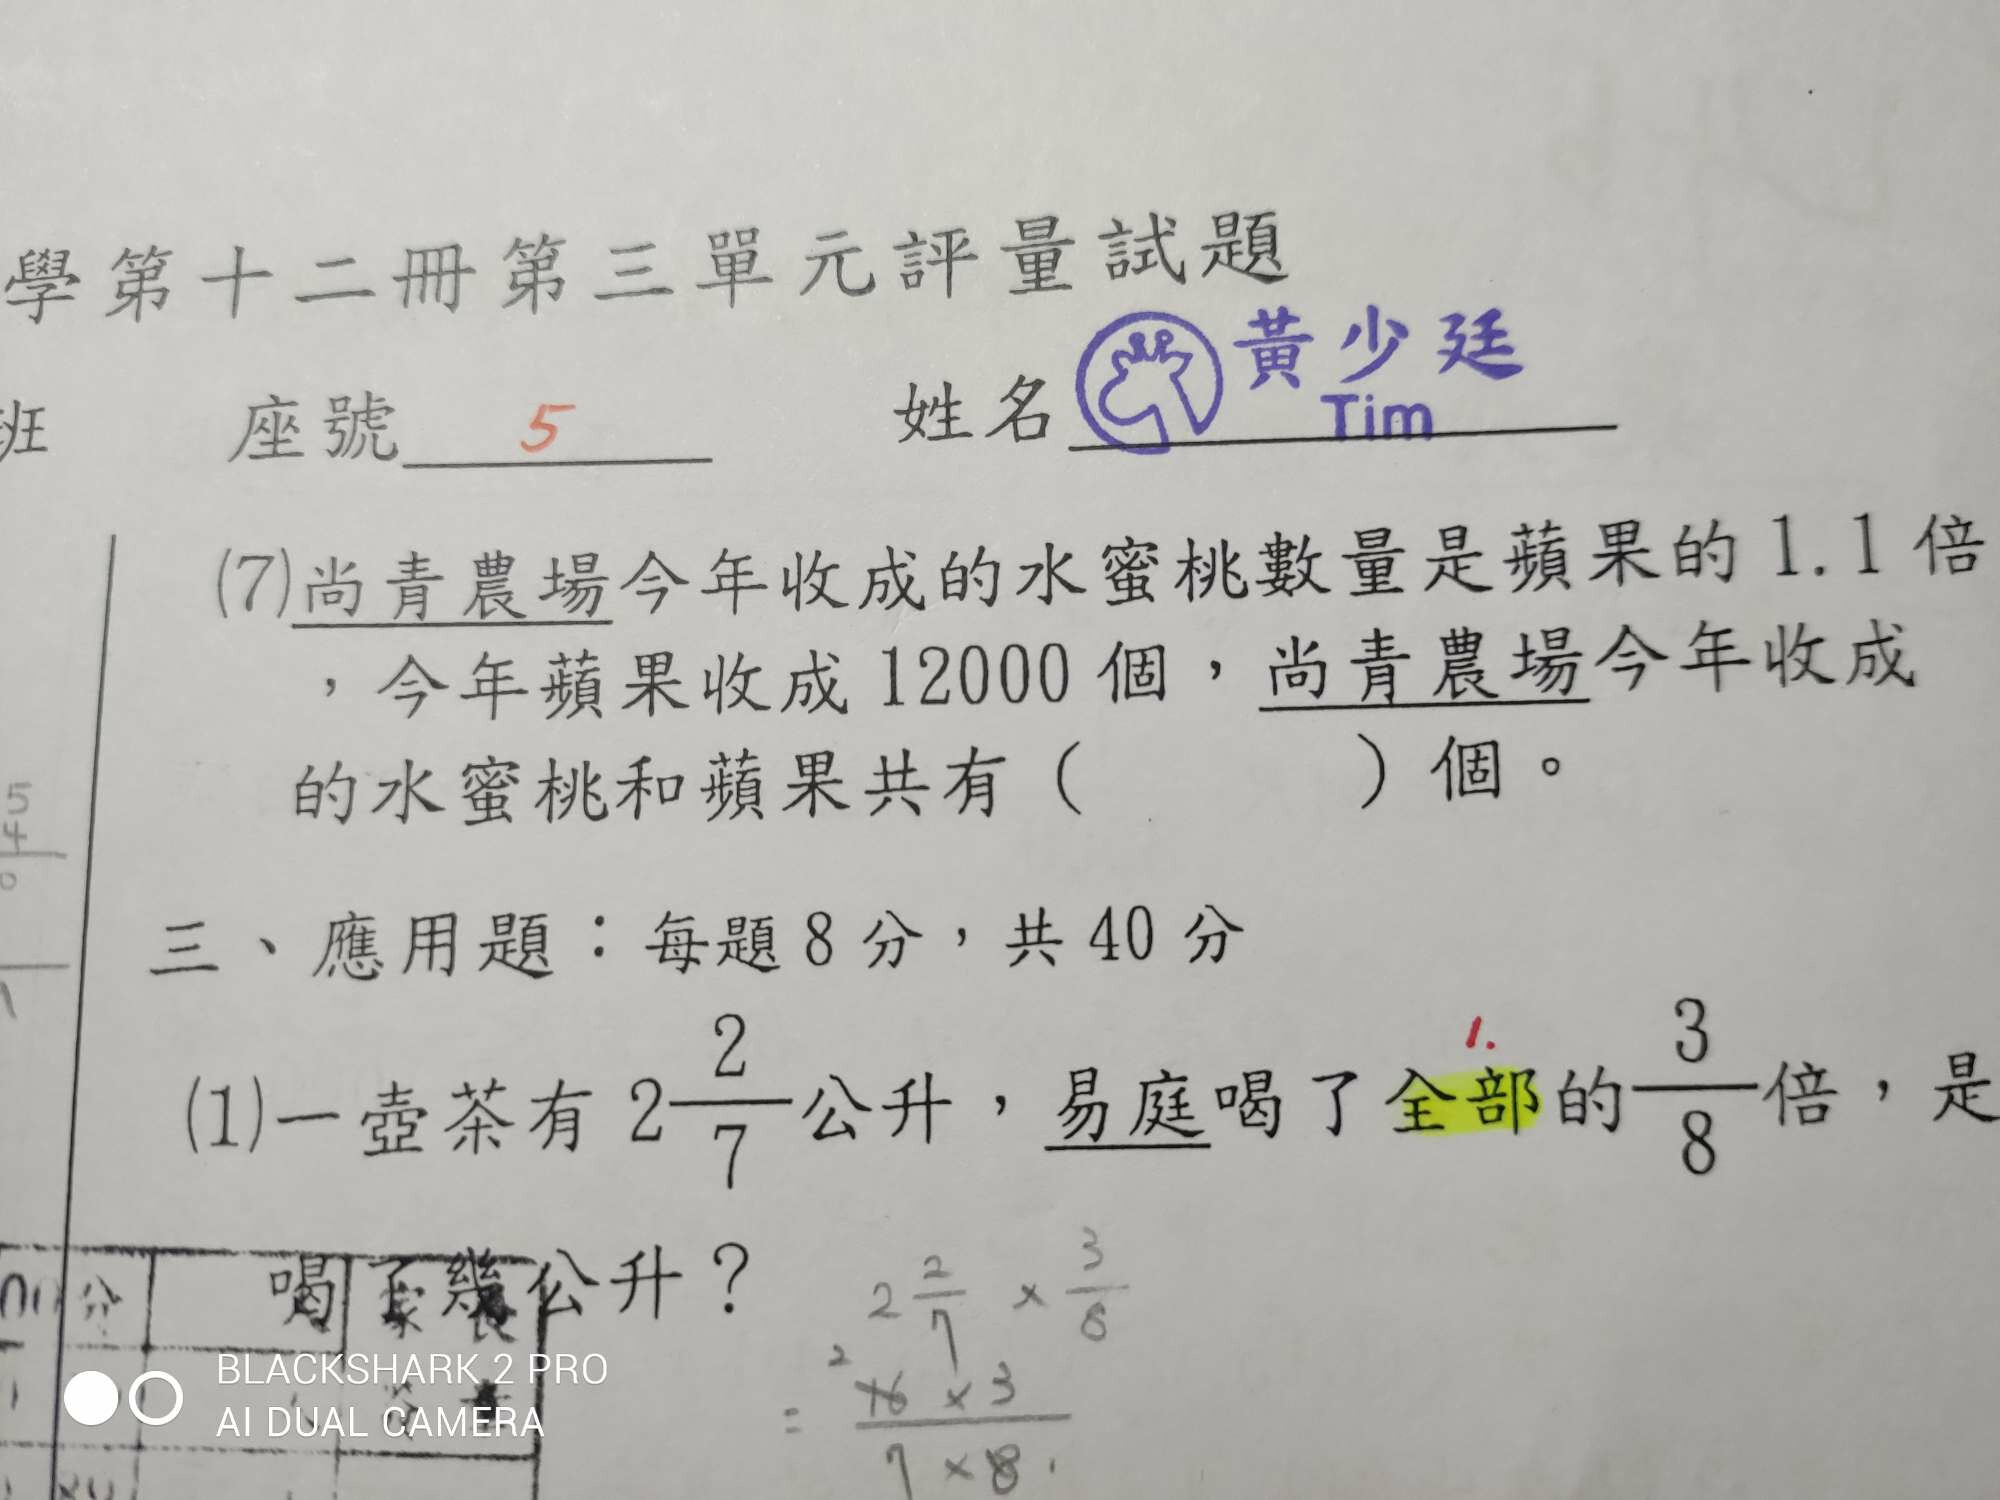 學第十二冊第三單元評量試題
班 座號 5 姓名 黃少廷
Tim
(7)尚青農場今年收成的水蜜桃數量是蘋果的1.1倍
，今年蘋果收成12000個，尚青農場今年收成
的水蜜桃和蘋果共有（ ）個。
三、應用題：每題8分，共40分
1.
(1)一壺茶有2 2/7公升，易庭喝了全部的3/8倍，是
喝了幾公升？
2 2/7 × 3/8
= 16 × 3 / 7 × 8
2
5
4
0
分
BLACKSHARK 2 PRO
AI DUAL CAMERA